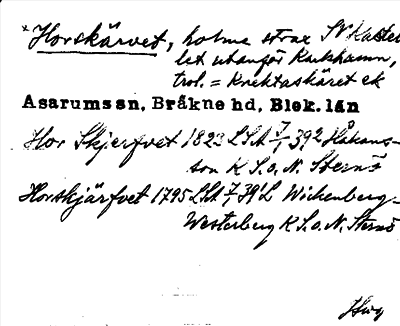 *Horskärvet, holme strax SV Kastel-
let utanför Karlshamn,
trol. = Knektaskäret ek
Asarums sn, Bräkne hd, Blek. län
Hor Skjerfvet 1823 LSA 7/1 392 Håkans-
son K S.o.N. Sternö
Horskjärfvet 1795 LSA 7/1 39 L Wickenberg-
Westerberg K S.o.N. Sternö
Hwg